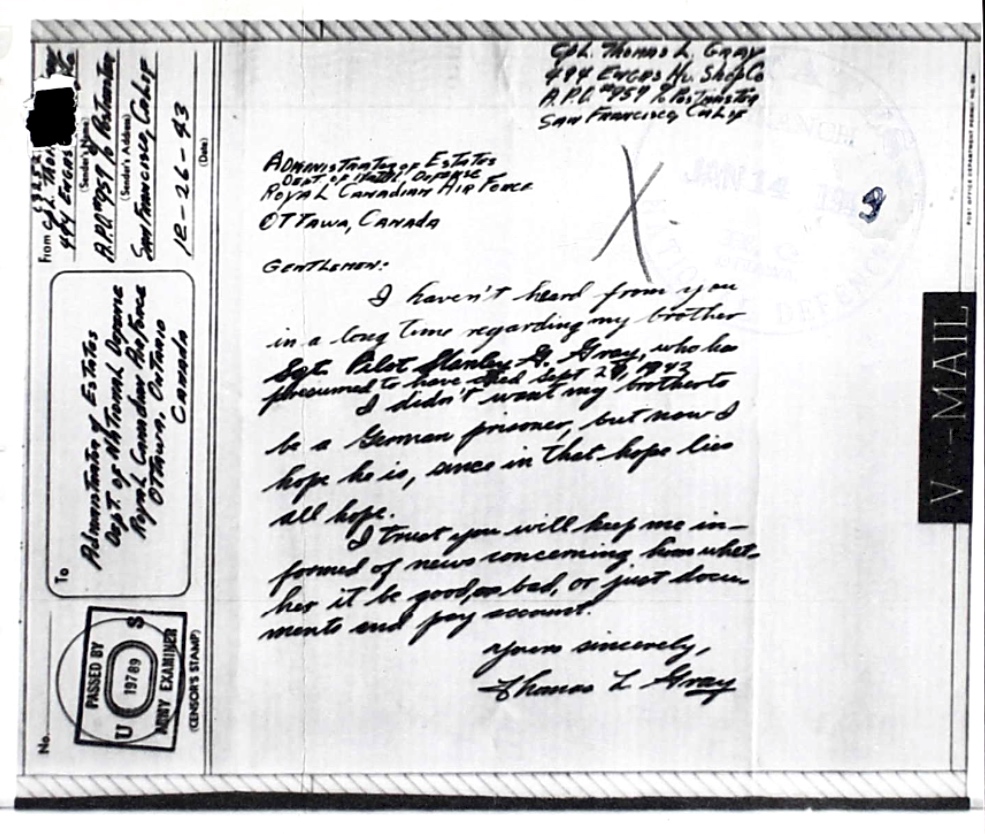 Cpl. Thomas L. Gray
494 Engrs Hv. Shop Co
A.P.O. #959 % Postmaster
San Francisco, Calif
Administrator of Estates
Dept of Nat'l Defense
Royal Canadian Air Force
Ottawa, Canada
Gentlemen:
I haven't heard from you
in a long time regarding my brother
Sgt. Pilot Stanley G. Gray, who has
presumed to have died Sept 29, 1942
I didn't want my brother to
be a German prisoner, but now I
hope he is, since in that hope lies
all hope.
I trust you will keep me in-
formed of news concerning him whet-
her it be good, or bad, or just docu-
ments and pay account.
Yours sincerely,
Thomas L Gray
X
V···—MAIL
POST OFFICE DEPARTMENT PERMIT NO.
No.
To
Administrator of Estates
Dept. of National Defense
Royal Canadian Air Force
Ottawa, Ontario
Canada
From Cpl. Thom
(Sender's Name)
494 Engrs
A.P.O. #959 % Postmaster
(Sender's Address)
San Francisco, Calif
12-26-43
(Date)
PASSED BY
U S
19789
ARMY EXAMINER
(CENSOR'S STAMP)